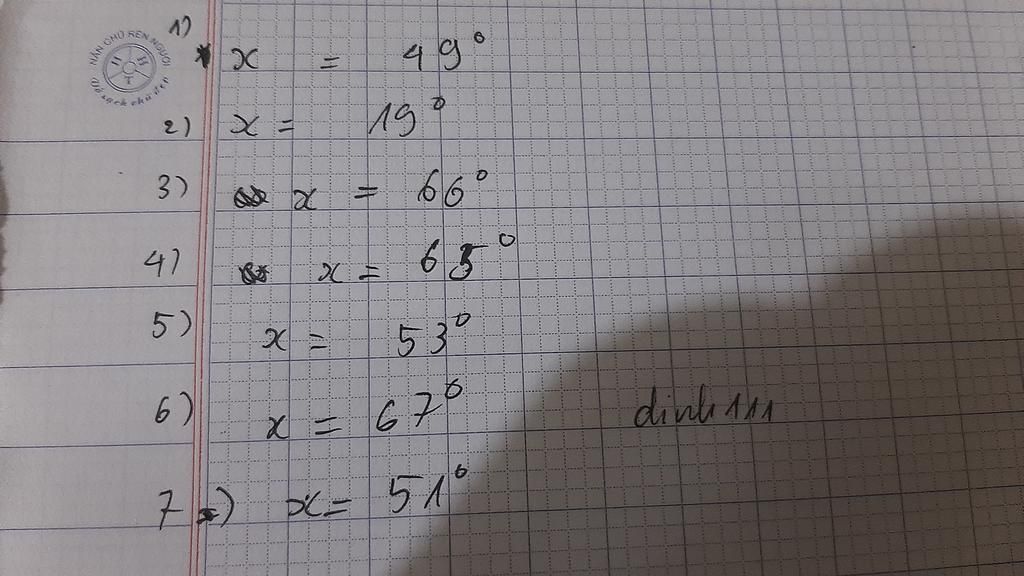 NẮN CHỮ RÈN NGƯỜI
H H T
Vở sạch chữ đẹp
1) x = 49°
2) x = 19°
3) x = 66°
4) x = 65°
5) x = 53°
6) x = 67°
dinh111
7) x = 51°